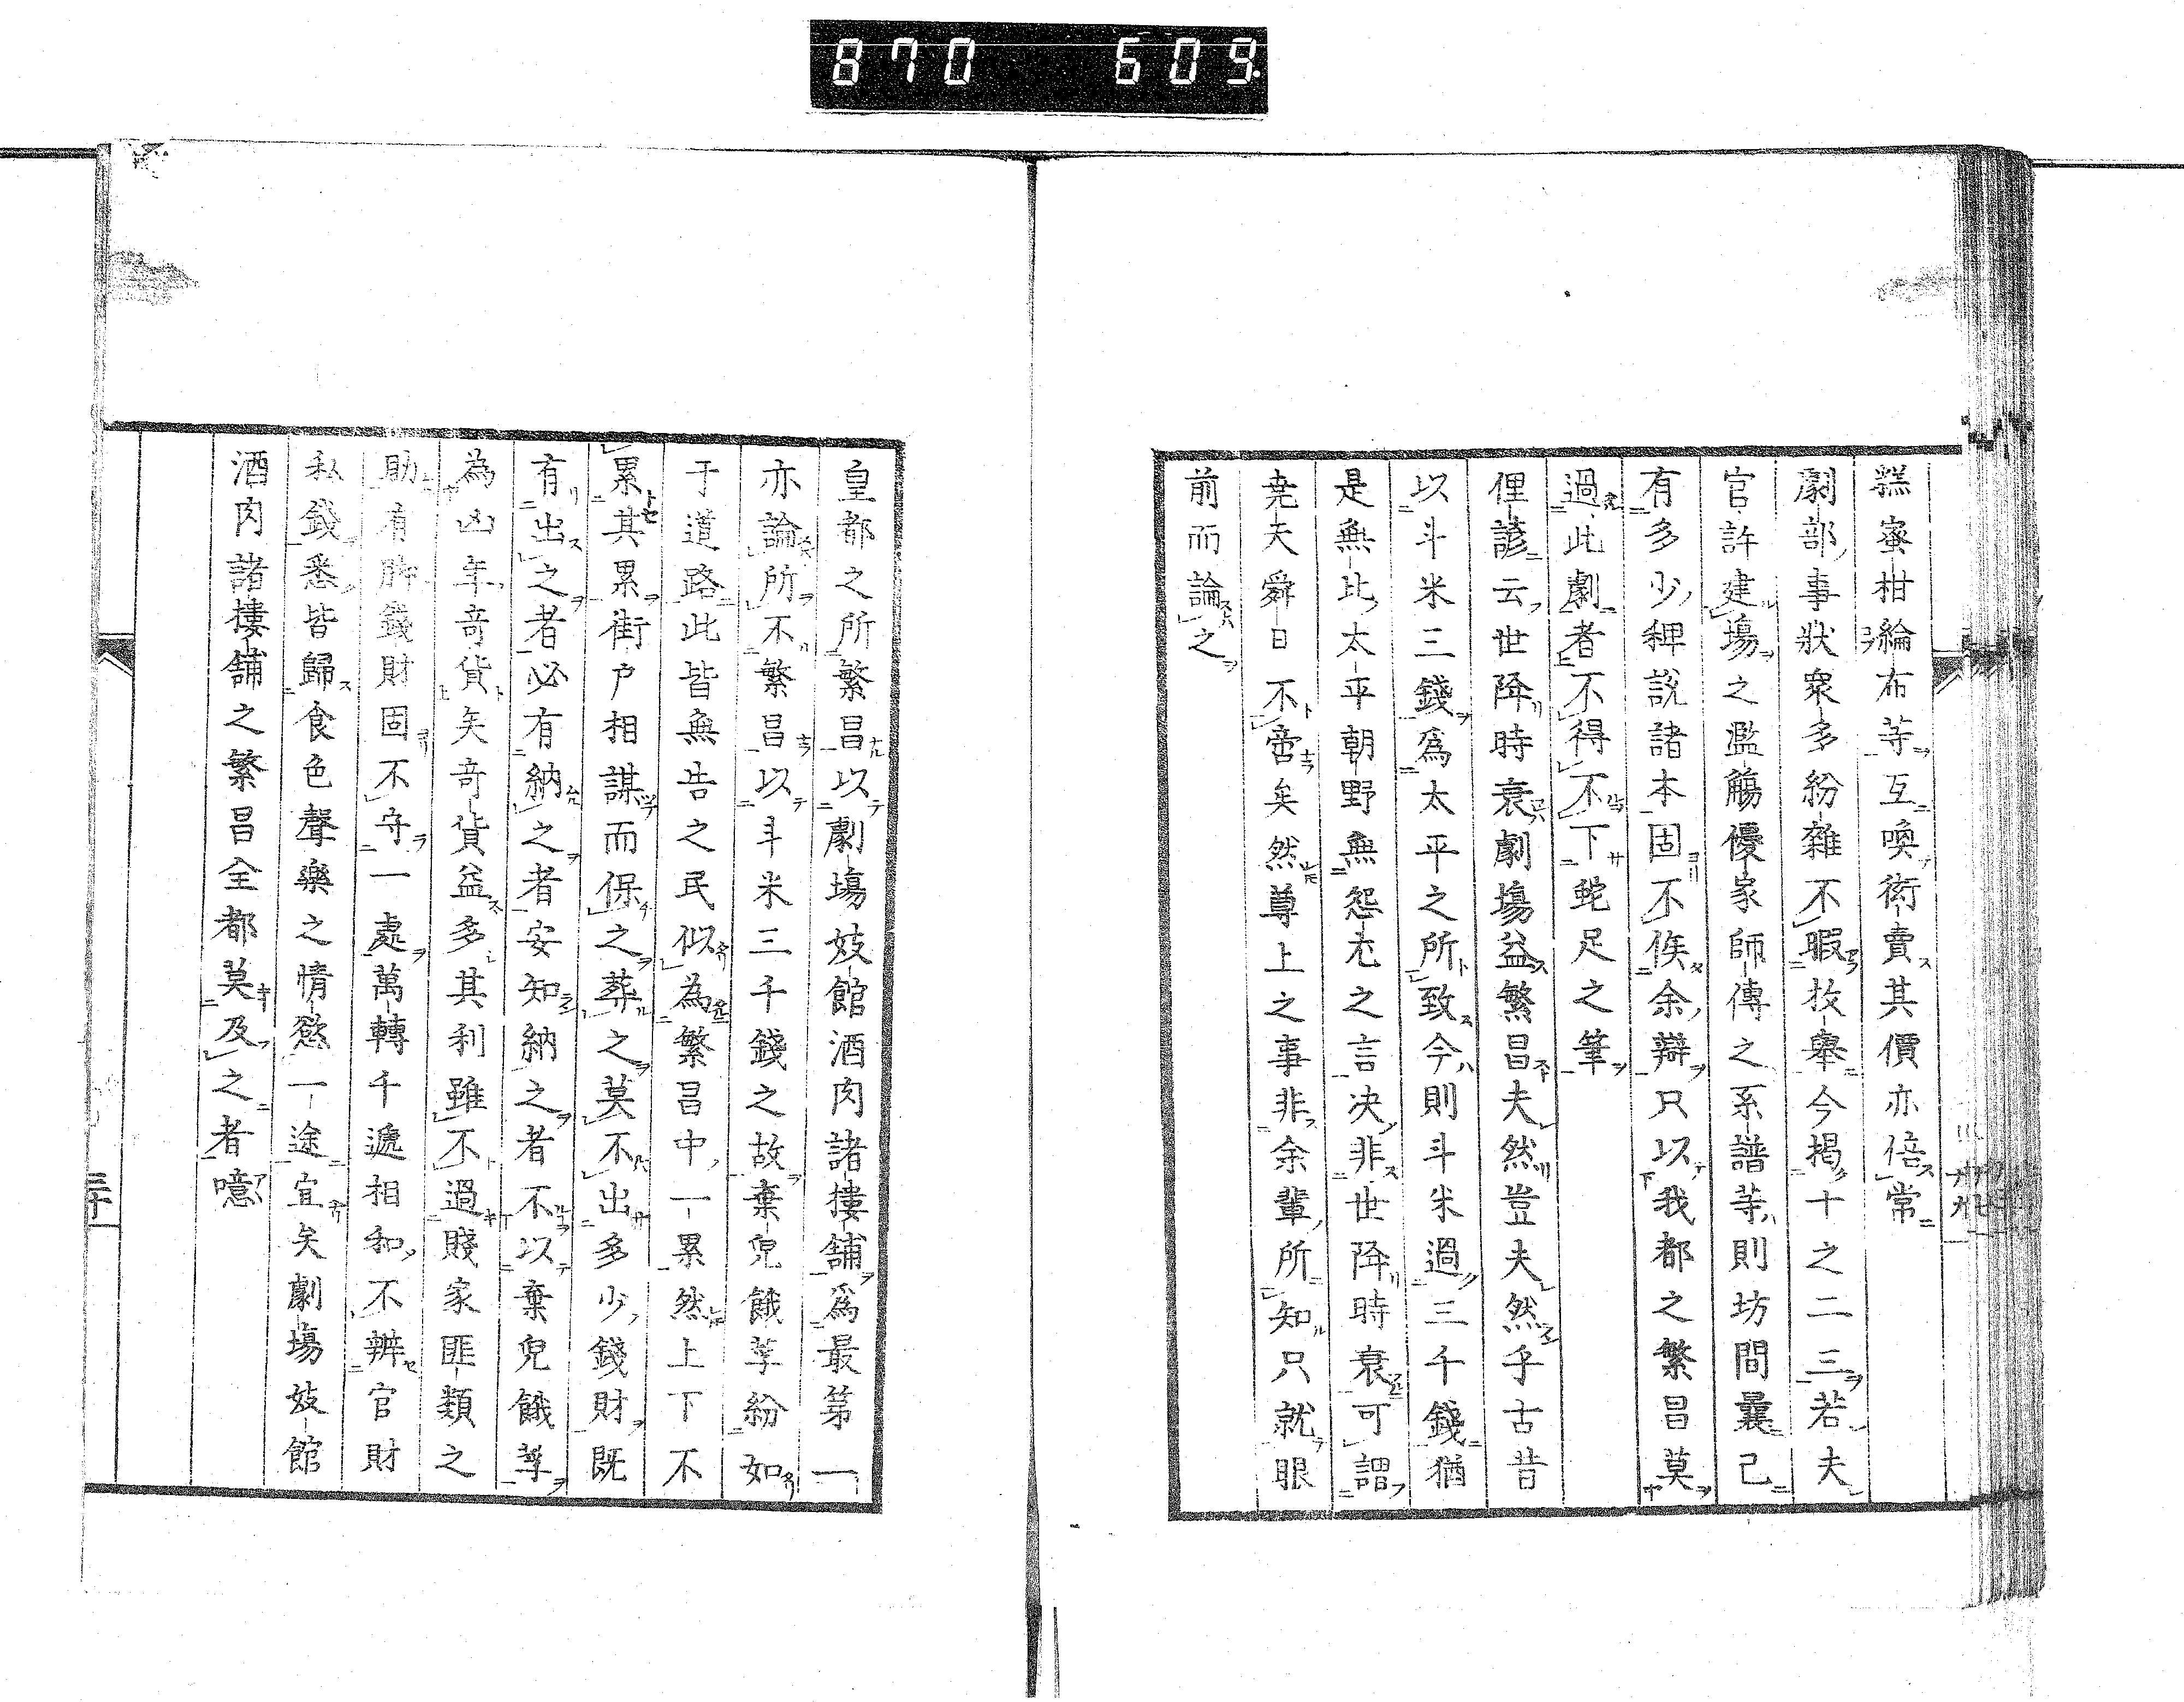 870 609.
糕蜜柑綸布等互喚術賣其價亦倍常
劇部事狀衆多紛雜不暇枚舉今揭十之二三若夫
官許建塲之濫觴優家師傳之系譜等則坊間曩已
有多少稗説諸本固不俟余辯只以我都之繁昌莫
過此劇者不得不下鮀足之筆
俚諺云世降時衰劇塲益繁昌夫然豈夫然乎古昔
以斗米三錢爲太平之所致今則斗米過三千錢猶
是無比太平朝野無怨尤之言决非世降時衰可謂
堯天舜日不啻矣然尊上之事非余輩所知只就眼
前而論之
皇都之所繁昌以劇塲妓館酒肉諸樓舖爲最第一
亦論所不繁昌以斗米三千錢之故棄兒餓莩紛如
于道路此皆無告之民似為繁昌中一累然上下不
累其累街户相謀而保之葬之莫不出多少錢財既
有出之者必有納之者安知納之者不以棄兒餓莩
為凶年奇貨矣奇貨益多其利雖不過賤家匪類之
助有脚錢財固不守一處萬轉千遞相和不辨官財
私錢悉皆歸食色聲樂之情慾一途宜矣劇塲妓館
酒肉諸樓舖之繁昌全都莫及之者噫
三十